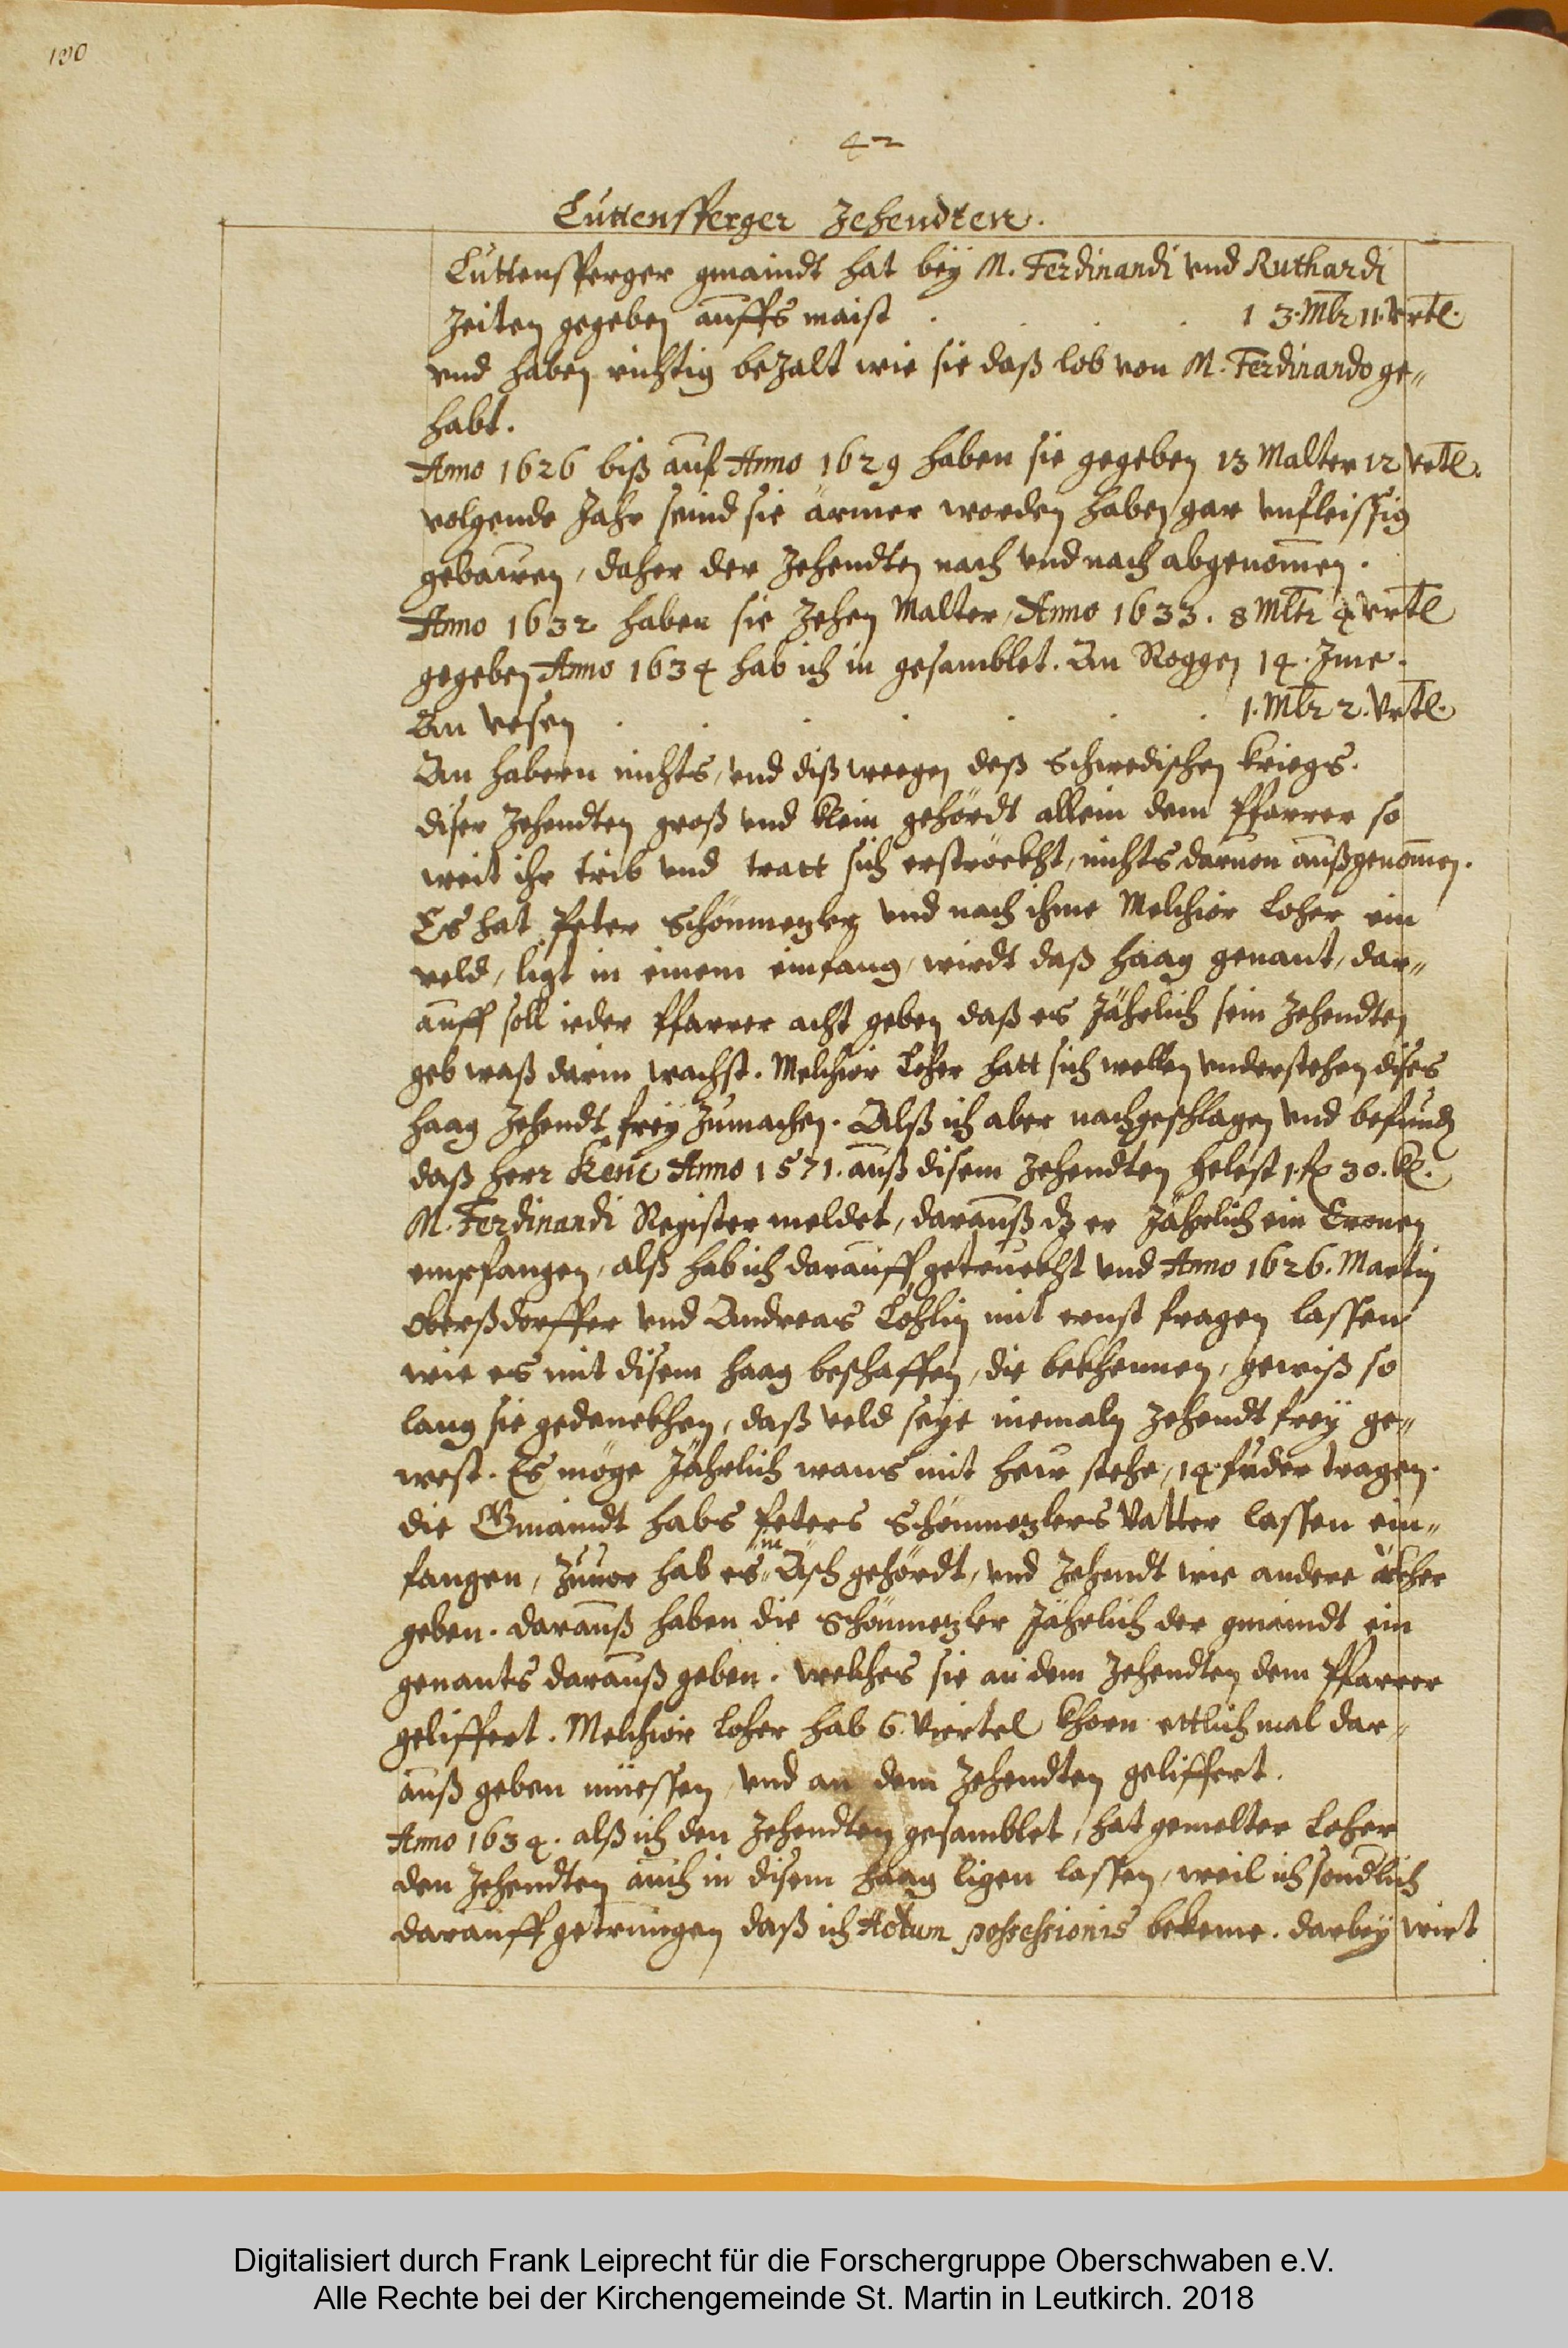 190
42
Luttensperger Zehendten.
Luttensperger gmaindt hat bëy M. Ferdinandi vnd Ruthardi
Zeiten gegeben auffs maist . . . . 13. Mltr 11. vrtl.
vnd haben richtig bezalt wie sie daß lob von M. Ferdinando ge„
habt.
Anno 1626 biß auf Anno 1629 haben sie gegeben 13 Malter 12 vrtl.
volgende Jahr seind sie ärmer worden haben gar vnfleissig
gebawen, daher der Zehendten nach vnd nach abgenomen.
Anno 1632 haben sie Zehen Malter, Anno 1633. 8 Mltr 4 vrtl
gegeben Anno 1634 hab ich in gesamblet. An Roggen 14. Ime.
An vesen . . . . . . . 1. Mltr 2. vrtl.
An habern nichts, vnd diß weegen deß Schwedischen kriegs.
diser Zehendten groß vnd klein gehördt allein dem Pfarrer so
weit ihr trib vnd tratt sich erströckht, nichts daruon außgenomen.
Es hat Peter Schönmezler vnd nach ihme Melchior Loher ein
veld, ligt in einem einfang, wirdt daß Haag genant, dar„
auff soll ieder Pfarrer acht geben daß er Jährlich sein Zehendten
geb waß darin wachst. Melchior Loher hatt sich wellen vnderstehen dises
Haag Zehendt frëy Zumachen. Alß ich aber nachgeschlagen vnd befund
daß herr Anno 1571. auß disem Zehendten helest 1. fl 30. kr.
M. Ferdinandi Register meldet, darauß dz er Jährlich ein Cronen
empfangen, alß hab ich darauff getruckht vnd Anno 1626. Martin
Oberßdorffer vnd Andreas Löhlin mit ernst fragen lassen
wie es mit disem Haag beschaffen, die bekhennen, gewiß so
lang sie gedenckhen, daß veld seÿe niemaln Zehendt frëy ge„
west. Es möge Jährlich wans mit hew stehe, 14. fuder tragen.
die Gmaindt habs Peters Schönmezlers Vatter lassen ein„
fangen, Zuuor hab es in Äsch gehördt, vnd Zehendt wie andere äkher
geben. darauß haben die Schönmezler Jährlich der gmaindt ein
genants darauß geben. welches sie an dem Zehendten dem Pfarrer
geliffert. Melchior Loher hab 6. Viertel khorn ettlich mal dar„
auß geben müessen, vnd an dem Zehendten geliffert.
Anno 1634. alß ich den Zehendten gesamblet, hat gemelter Loher
den Zehendten auch in disem Haag ligen lassen, weil ich sondlich
darauff getrungen daß ich Actum possessionis bekeme. darbëy wirt
Digitalisiert durch Frank Leiprecht für die Forschergruppe Oberschwaben e.V.
Alle Rechte bei der Kirchengemeinde St. Martin in Leutkirch. 2018